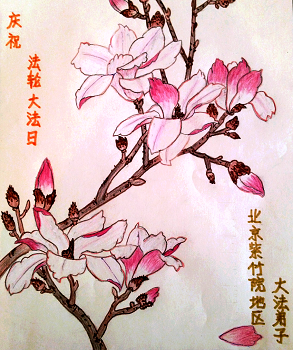 庆祝
法轮大法日
北京紫竹院地区
大法弟子